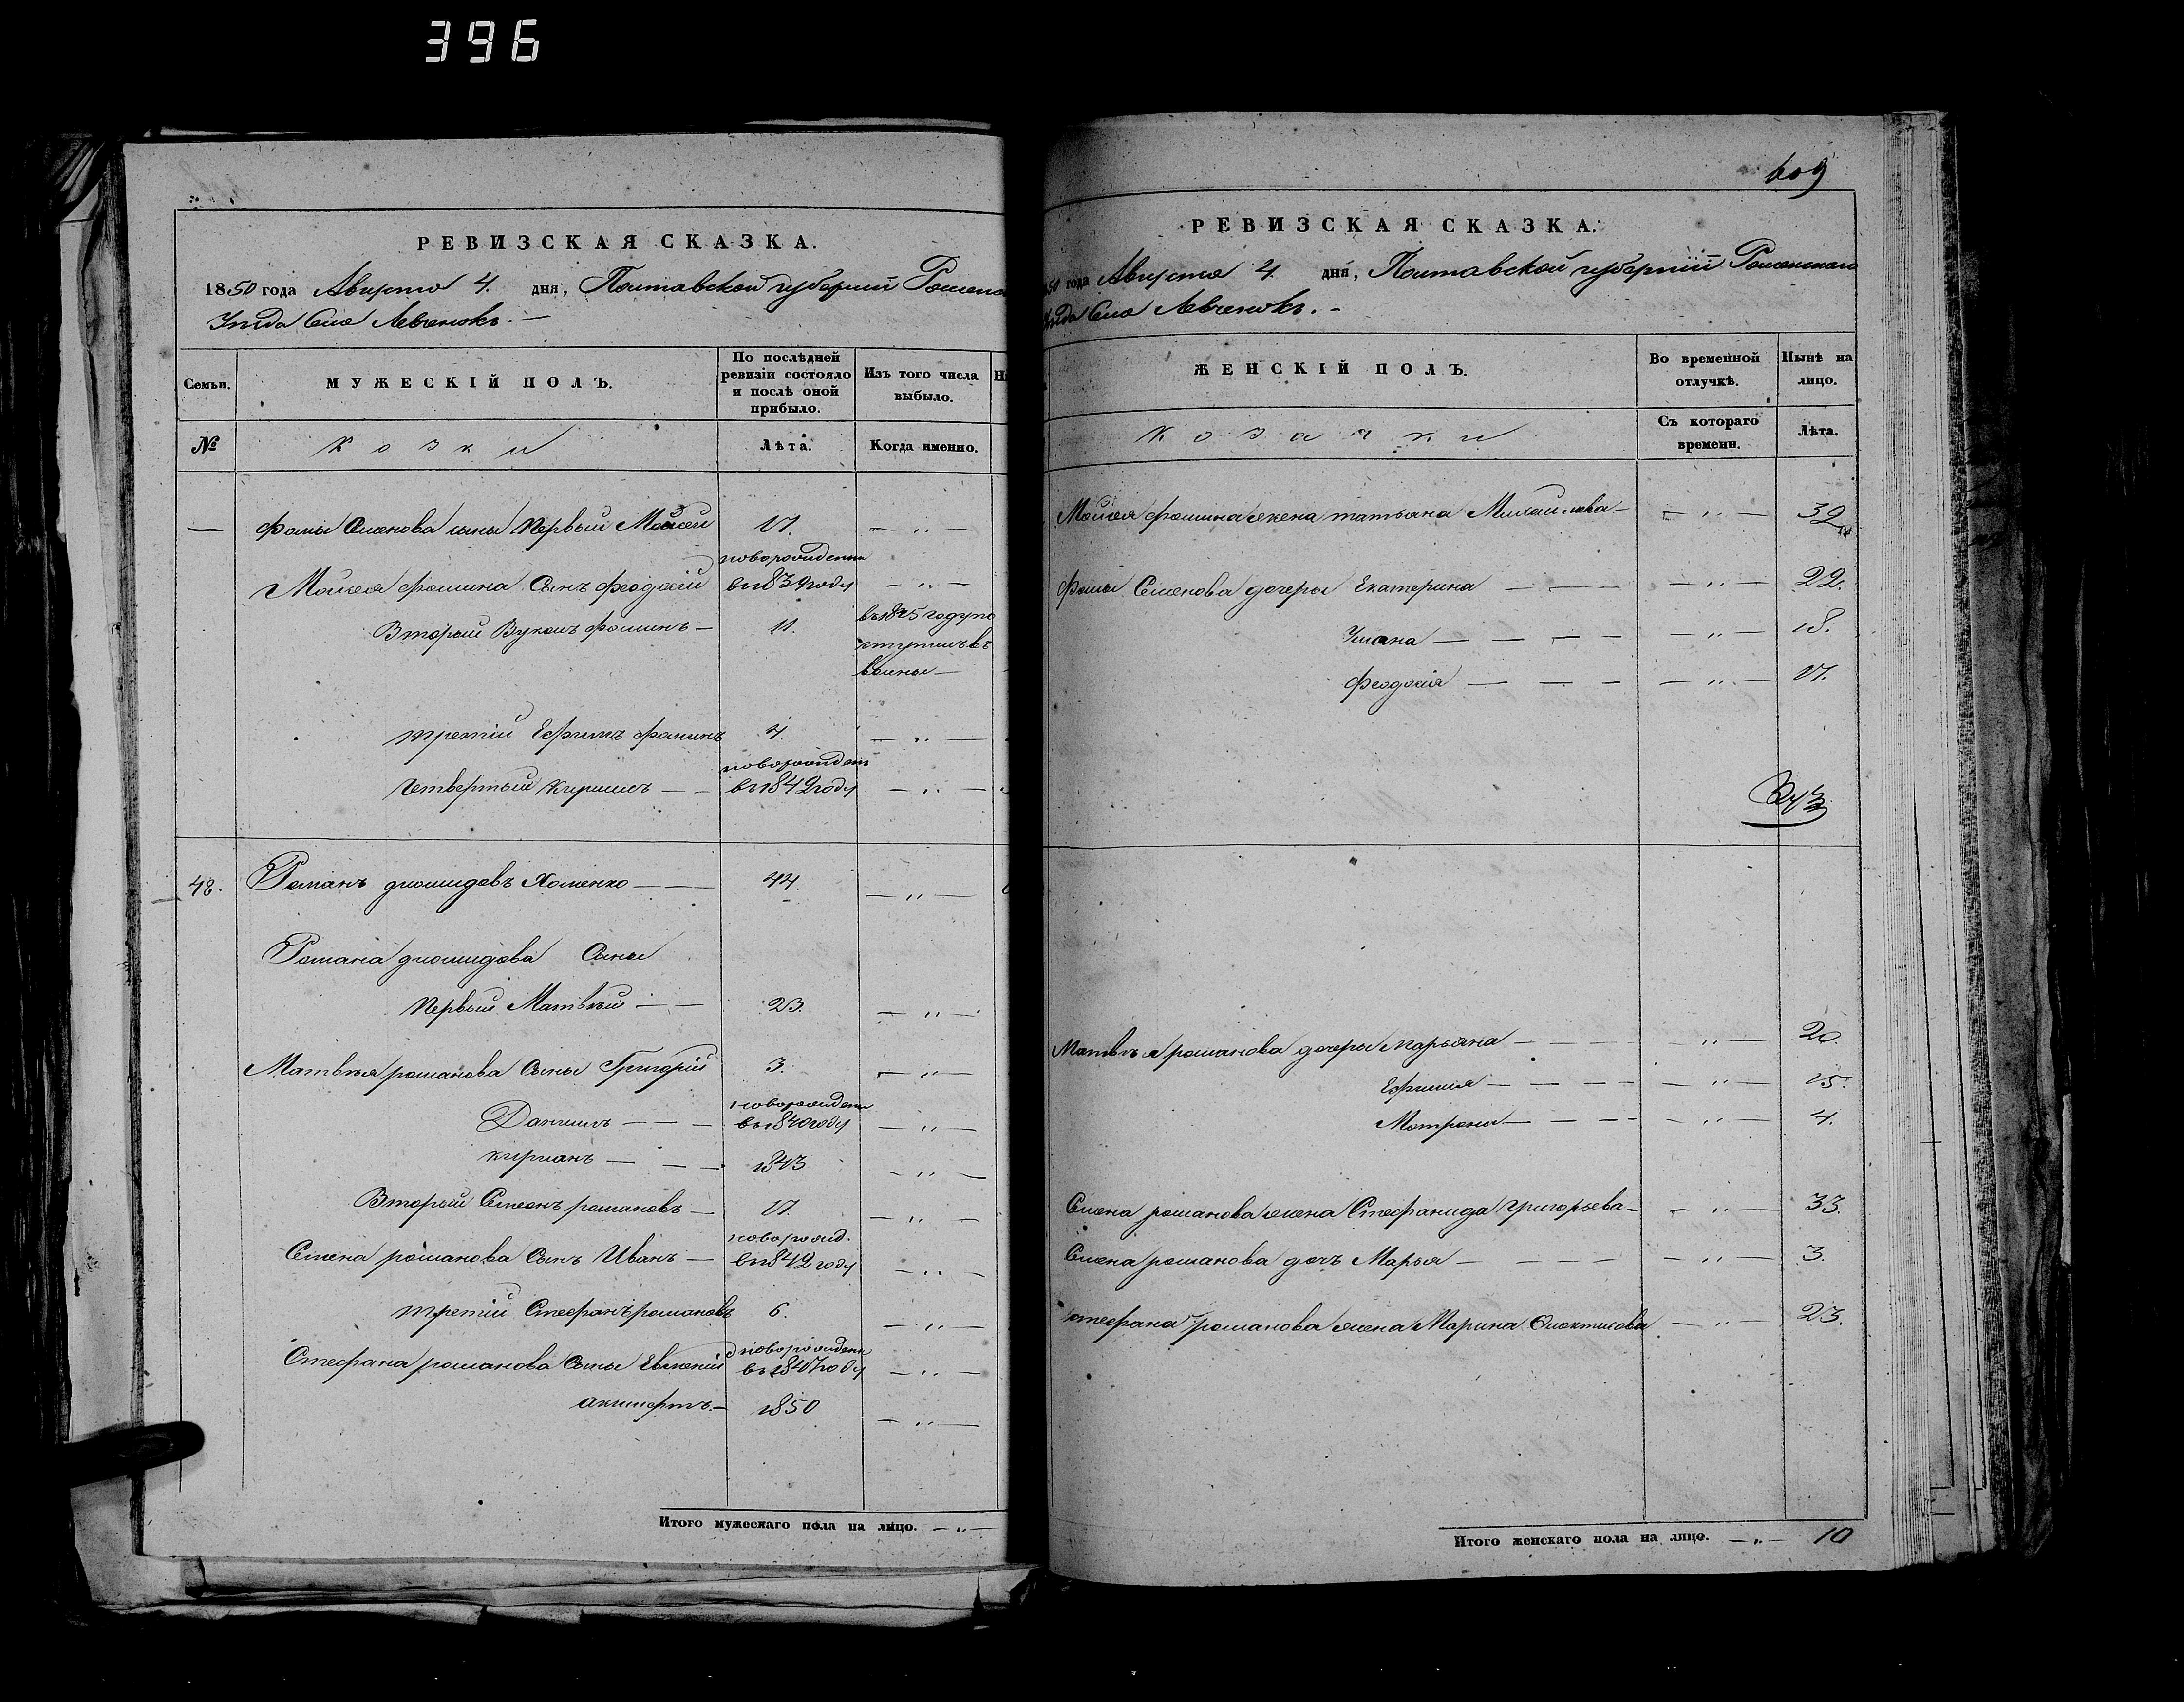 396
РЕВИЗСКАЯ СКАЗКА.
1850 года Августа 4. дня, Полтавской губернии
Уезда Села Левченокъ. —
Семьи.
МУЖЕСКІЙ ПОЛЪ.
По послѣдней ревизіи состояло и послѣ оной прибыло.
Изъ того числа выбыло.
№
Козки
Лѣта.
Когда именно.
— Фомы Семенова сыны Первый Мойсей 17. — „ —
Мойсея Фомина Сынъ Феодосій новорожденн въ 1839 году — „ —
Второй Фоминъ — 11. въ 1845 году по
ступилъ въ
военны —
третій Ефимъ Фоминъ 4. — „ —
Четвертый Кирилъ — — новорожден въ 1842 году — „ —
48. Романъ диомидовъ Хоменко — — 44. — „ —
Романа диомидова Сыны
Первый Матвѣй — — 23. — „ —
Матвѣя романова Сыны Григорій 3. — „ —
Данилъ — — — новорожден въ 1840 году — „ —
— — — 1843 — „ —
Второй Семенъ романовъ — 17. — „ —
Семена романова Сынъ Иванъ — новорожд. въ 1842 году — „ —
третій Стефанъ романовъ 6. — „ —
Стефана романова Сыны новорожденн въ 1847 году — „ —
1850 — „ —
Итого мужескаго пола на лицо. — „ —
609
РЕВИЗСКАЯ СКАЗКА.
50 года Августа 4. дня, Полтавской губерніи Роменскаго
Уезда Села Левченокъ. —
ЖЕНСКІЙ ПОЛЪ.
Во временной отлучкѣ.
Нынѣ на лицо.
Козачки
Съ котораго времени.
Лѣта.
Мойсея Фомина жена татьяна Михайлова — — „ — 32
Фомы Семенова дочеры Екатерина — — — „ — 22.
Улиана — — — — — „ — 18.
Феодосія — — — — „ — 17.
Матвѣя романова дочеры Марьяна — — — — — „ — 20.
Ефимия — — — — — „ — 15.
Мотрона — — — — — „ — 4.
Семена романова жена Стефанида Григорьева — — „ — 33.
Семена романова дочъ Марья — — — — — „ — 3.
стефана романова жена Марина — „ — 23.
Итого женскаго пола на лицо. — „ — 10